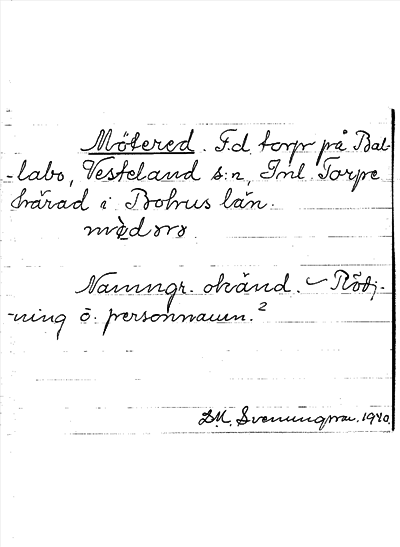 Mötered. F.d. torp på Bal-
-labo, Vesteland s:n, Inl. Torpe
härad i Bohus län.
Namngr. okänd. – Röj-
-ning o. personnamn.²
D.M. Svenungsson. 1940.